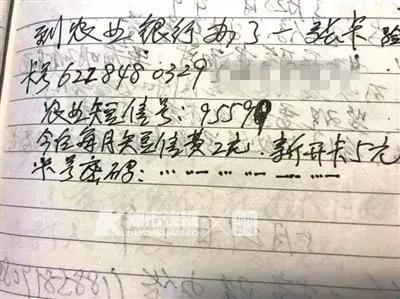 到农业银行办了一张卡
卡号622848 0329
农业短信号：95599
今后每月短信费2元.新开卡5元
卡号密码：